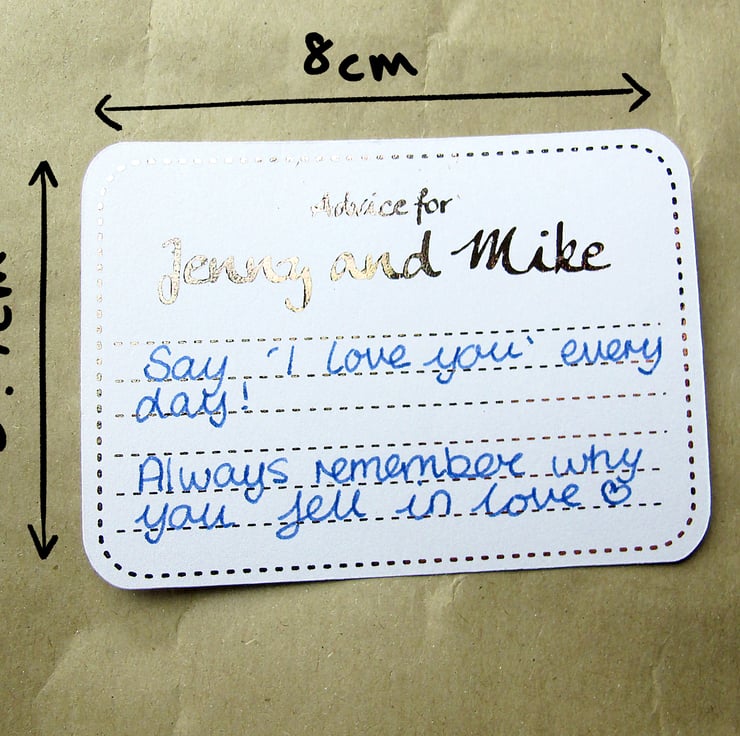 8cm
Advice for
Jenny and Mike
Say 'I love you' every
day!
Always remember why
you fell in love